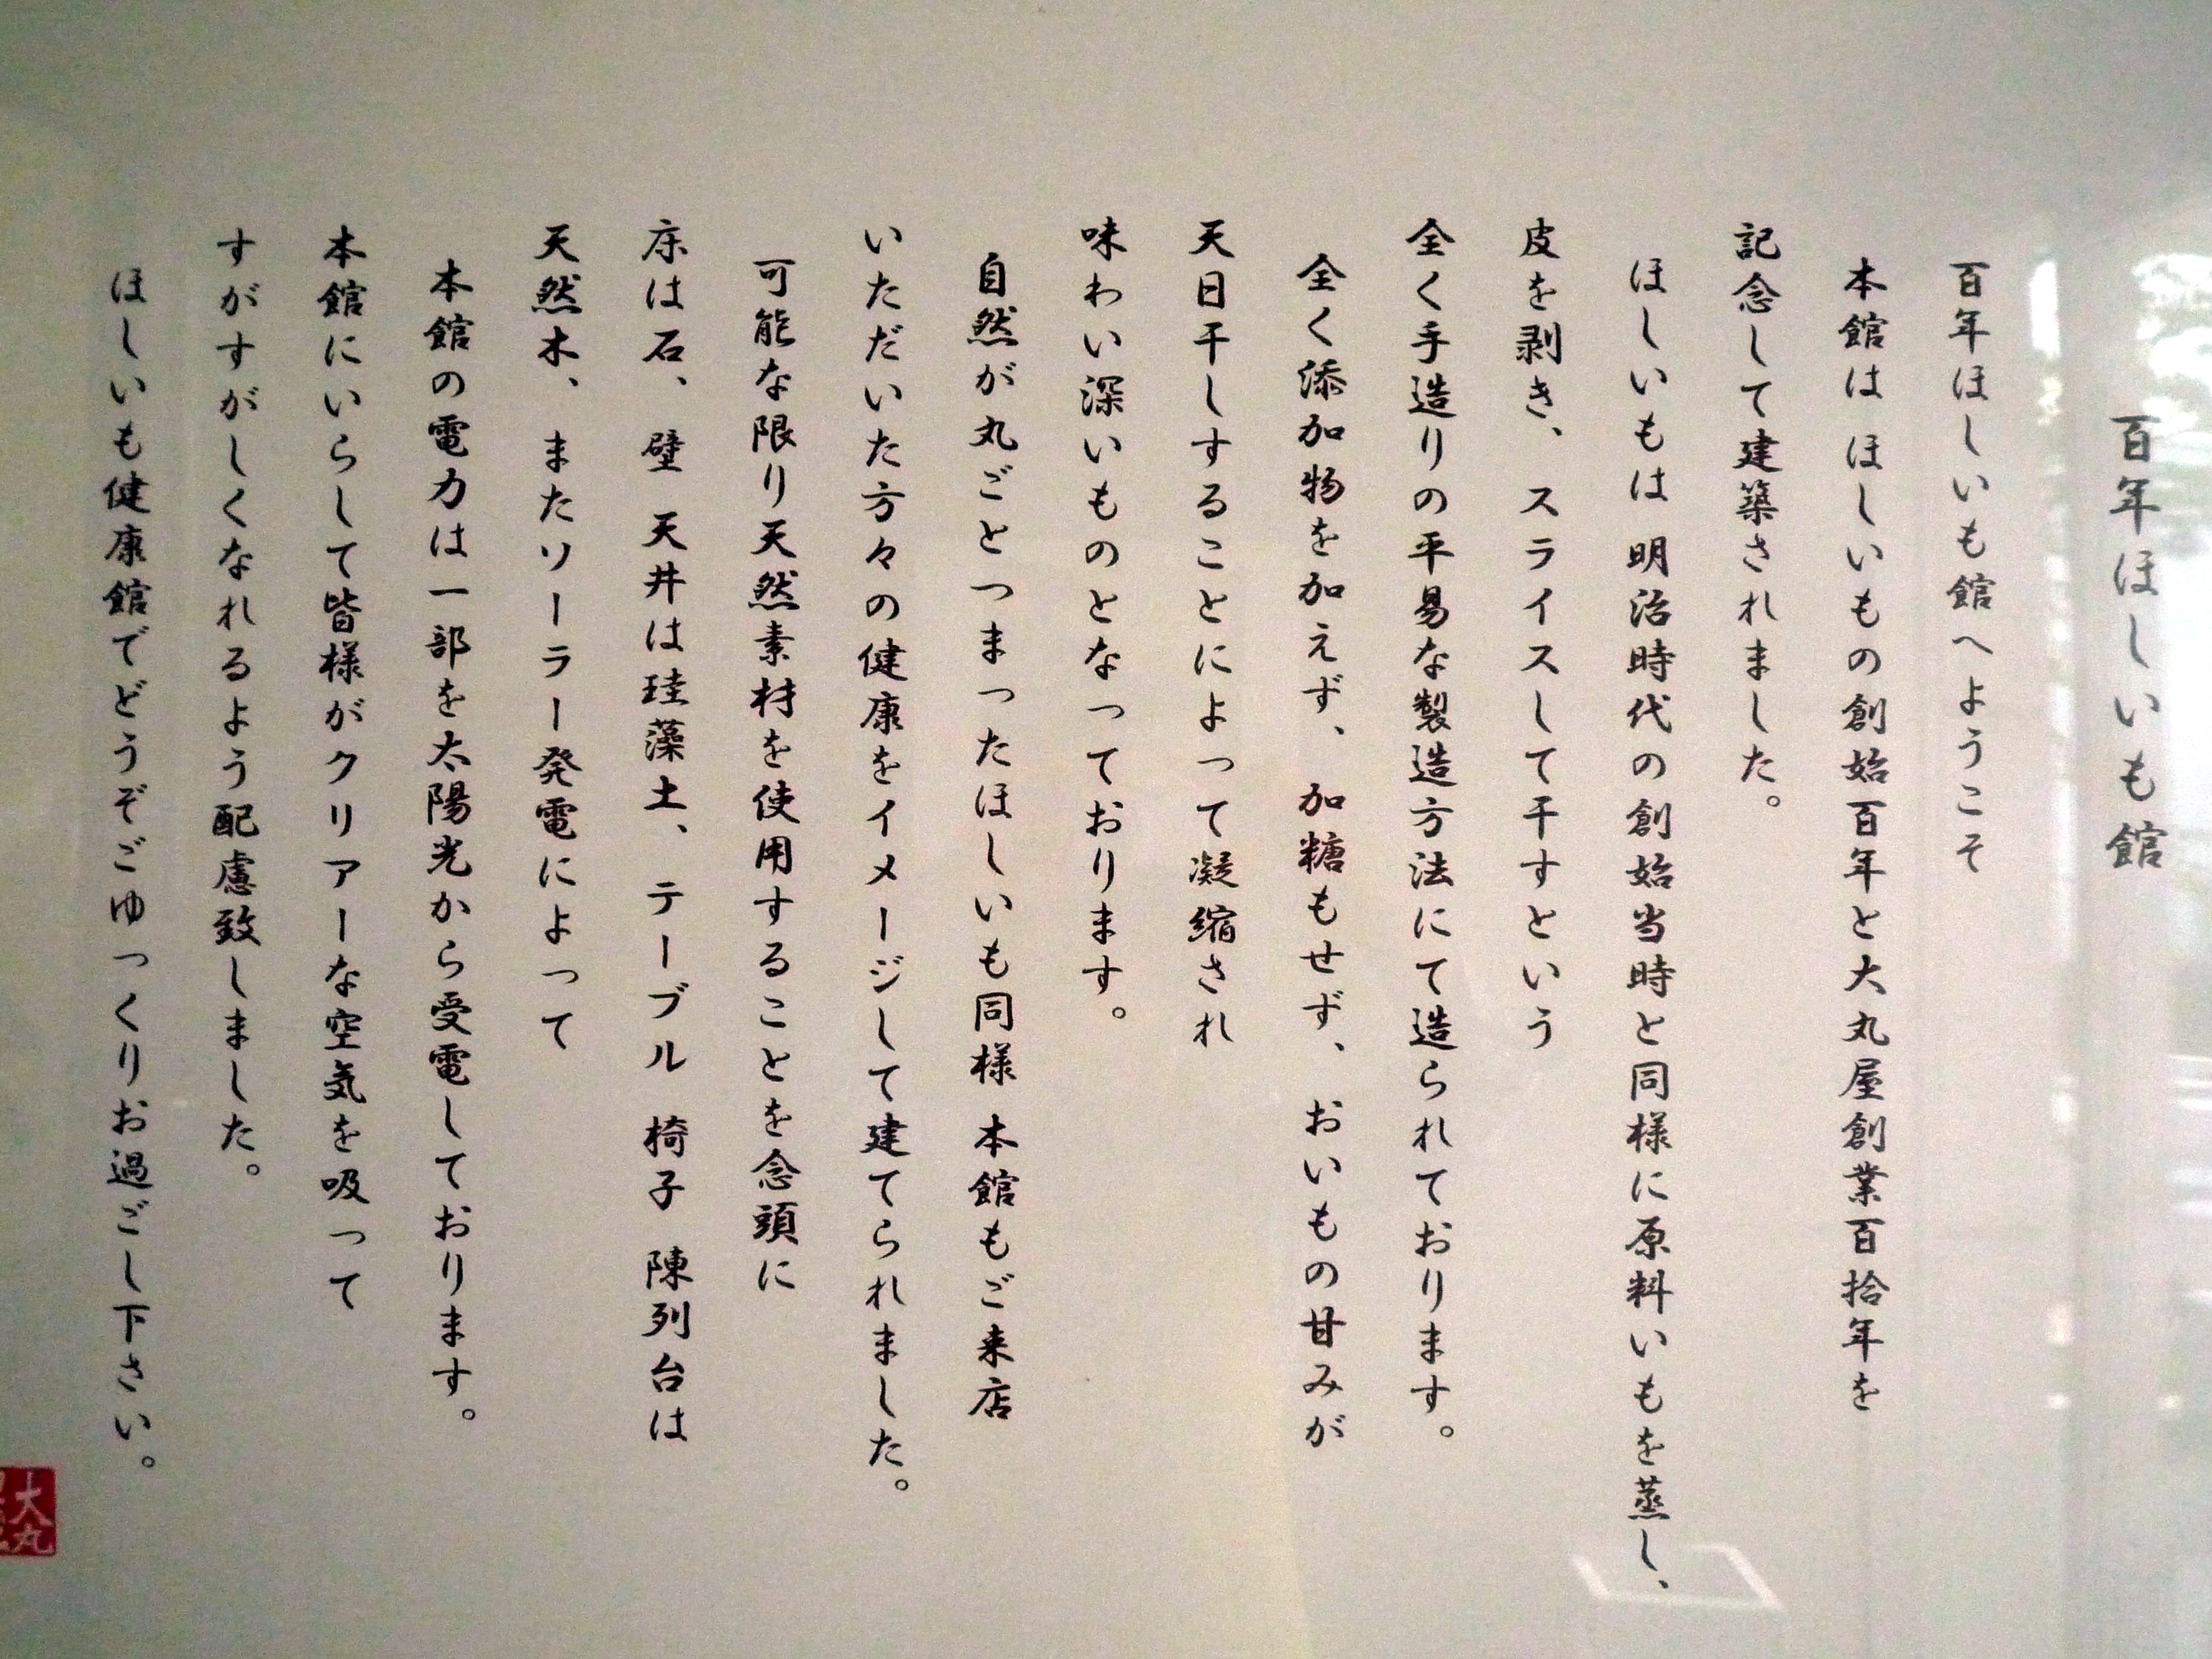 百年ほしいも館
百年ほしいも館へようこそ
本館は ほしいもの創始百年と大丸屋創業百拾年を
記念して建築されました。
ほしいもは 明治時代の創始当時と同様に原料いもを蒸し、
皮を剥き、スライスして干すという
全く手造りの平易な製造方法にて造られております。
全く添加物を加えず、加糖もせず、おいもの甘みが
天日干しすることによって凝縮され
味わい深いものとなっております。
自然が丸ごとつまったほしいも同様 本館もご来店
いただいた方々の健康をイメージして建てられました。
可能な限り天然素材を使用することを念頭に
床は石、壁 天井は珪藻土、テーブル 椅子 陳列台は
天然木、またソーラー発電によって
本館の電力は一部を太陽光から受電しております。
本館にいらして皆様がクリアーな空気を吸って
すがすがしくなれるよう配慮致しました。
ほしいも健康館でどうぞごゆっくりお過ごし下さい。
大丸